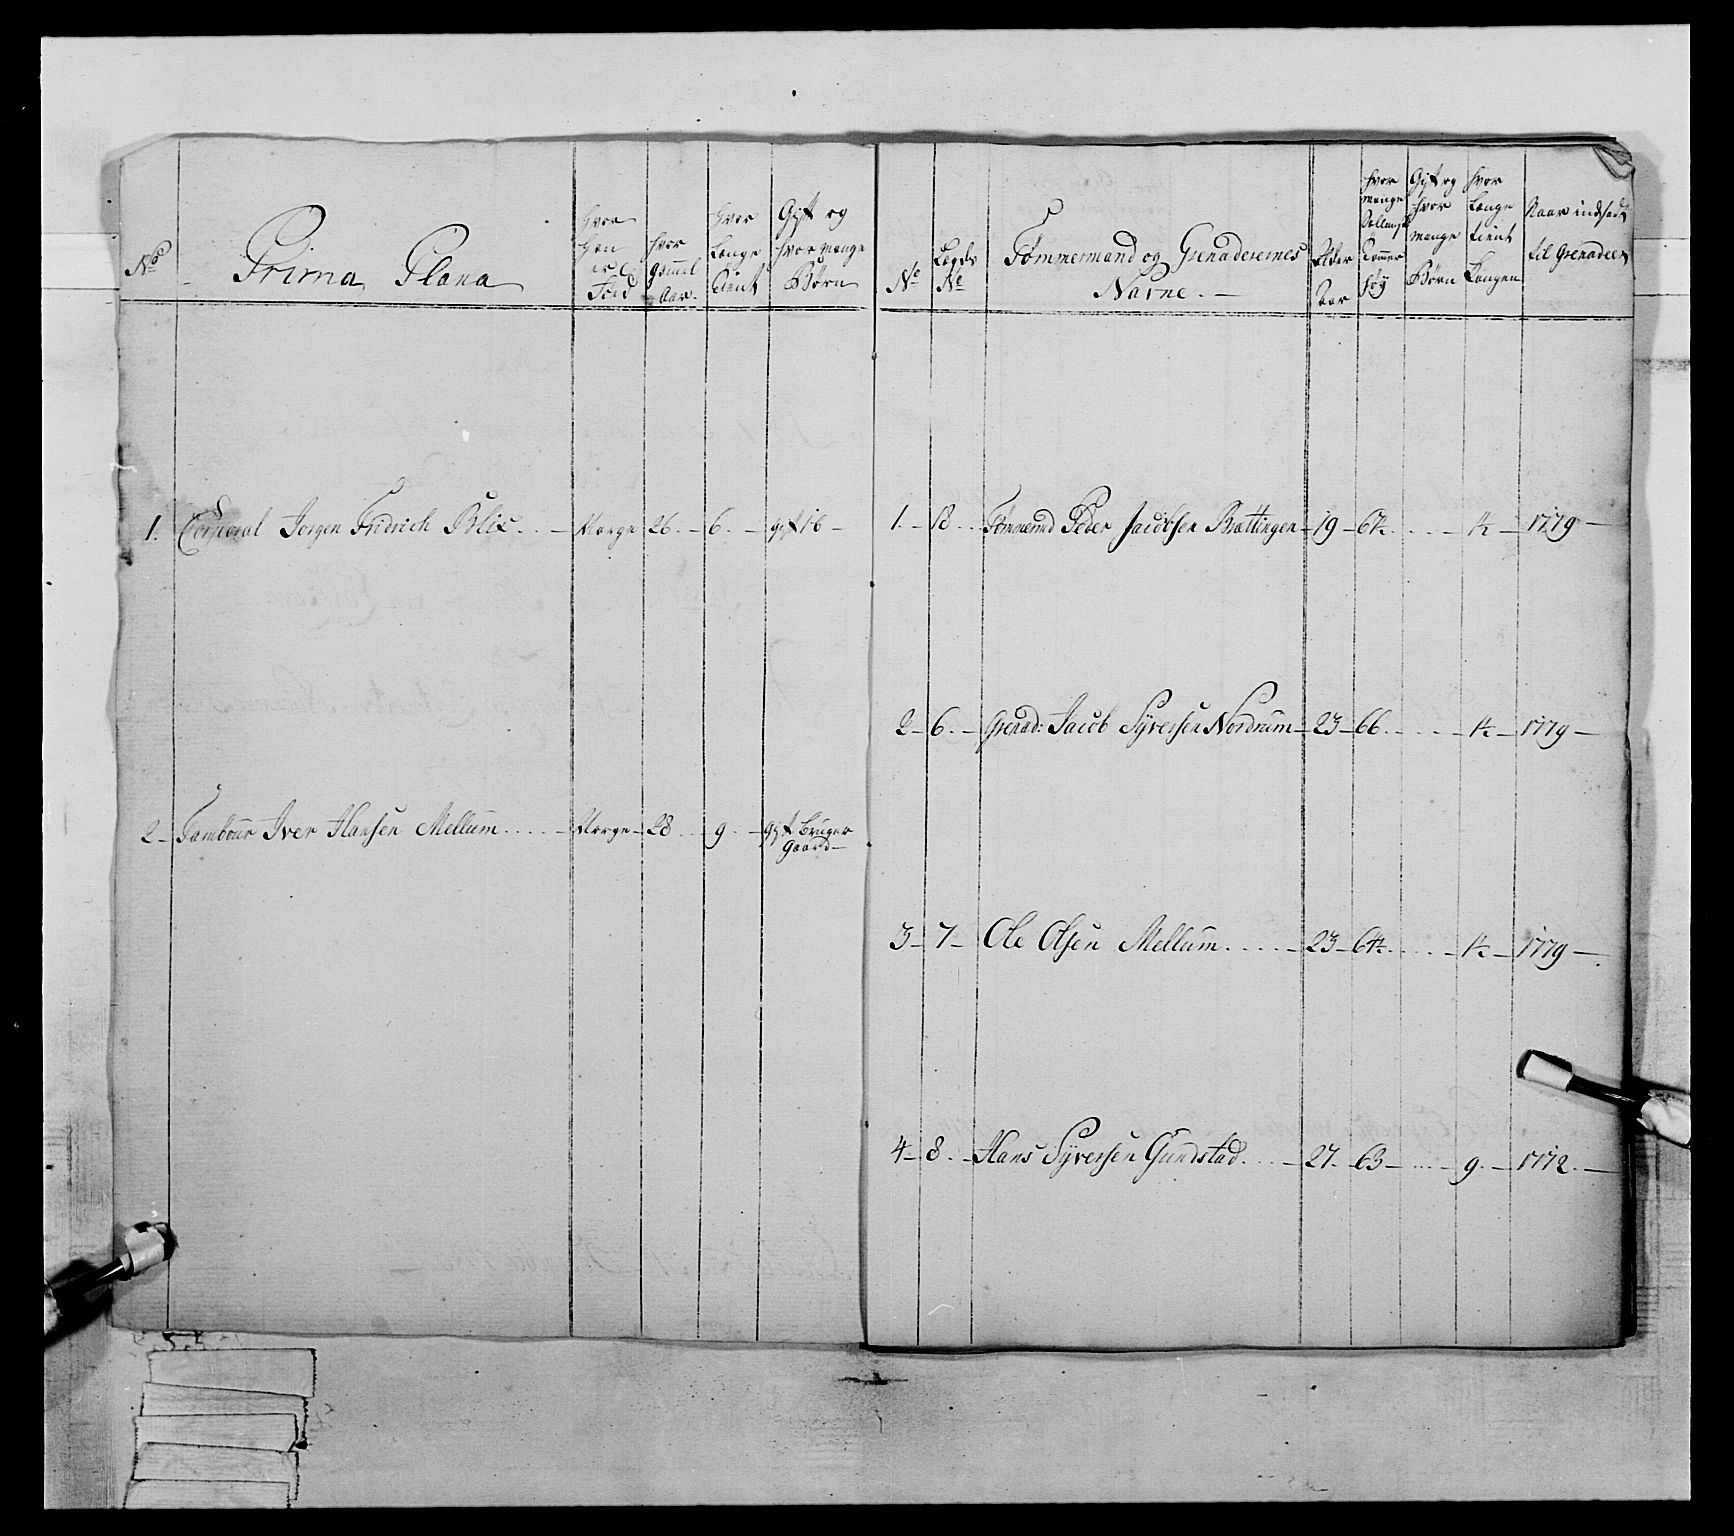 No
Prima Plana
hvor han er Föd
hvor Gammel Aar.
hvor Længe tient
Gift og hvor mange Börn
1. Corporal Jorgen Fridrich Blix. . . – Norge 26 – 6. – gift 1 b –
2 – Tambour Iver Hansen Mellum. . . . – Norge – 28 . . 9 . – gift bruger
Gaard –
No
Lægds No
Tømmermand og Grenaderernes
Navne. –
Alder Aar
hvor mange Tommer høy
Gift og hvor mange Børn
hvor Længe tient Kongen
Naar indsadt til Grenadeer
1. – 18 . . Tømmermd Peder Jacobsen Brættingen – 19 – 67½ . . . . – ½ – 1779 –
2 – 6. – Grenad: Jacob Syversen Nordrum – 23 – 66. . . . . – ½ – 1779 –
3 – 7 – Ole Olsen Mellum. . . . . – 23 – 64½ . . . . – ½ – 1779 –
4 – 8. – Hans Syversen Gundstad. . . – 27 – 63 – . . . – 9. – 1772. –